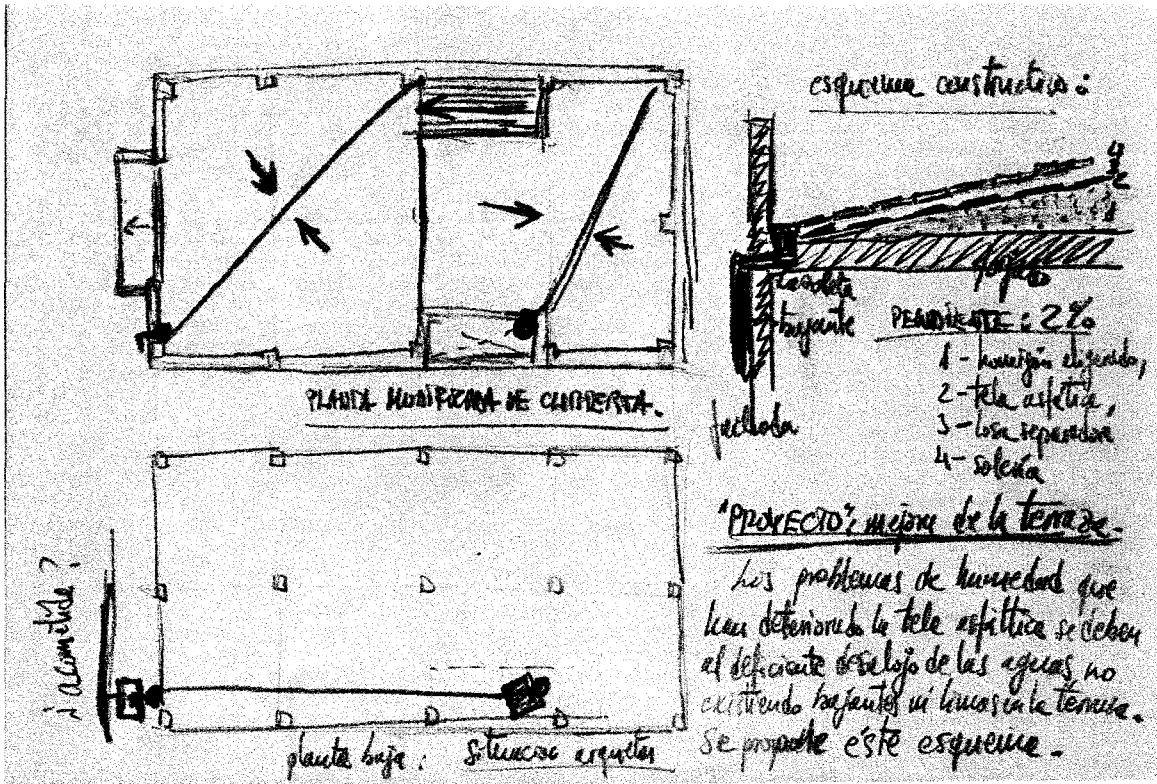 esquema constructivo:
4
3
2
1
cazoleta
forjado
bajante
PENDIENTE: 2%
1 - hormigón aligerado,
2 - tela asfáltica,
3 - losa separadora
4 - solería
fachada
PLANTA MODIFICADA DE CUBIERTA.
"PROYECTO": mejora de la terraza.
Los problemas de humedad que
han deteriorado la tela asfáltica se deben
al deficiente desalojo de las aguas no
existiendo bajantes ni limas en la terraza.
Se propone éste esquema.
¿acometida?
planta baja: situación arquetas